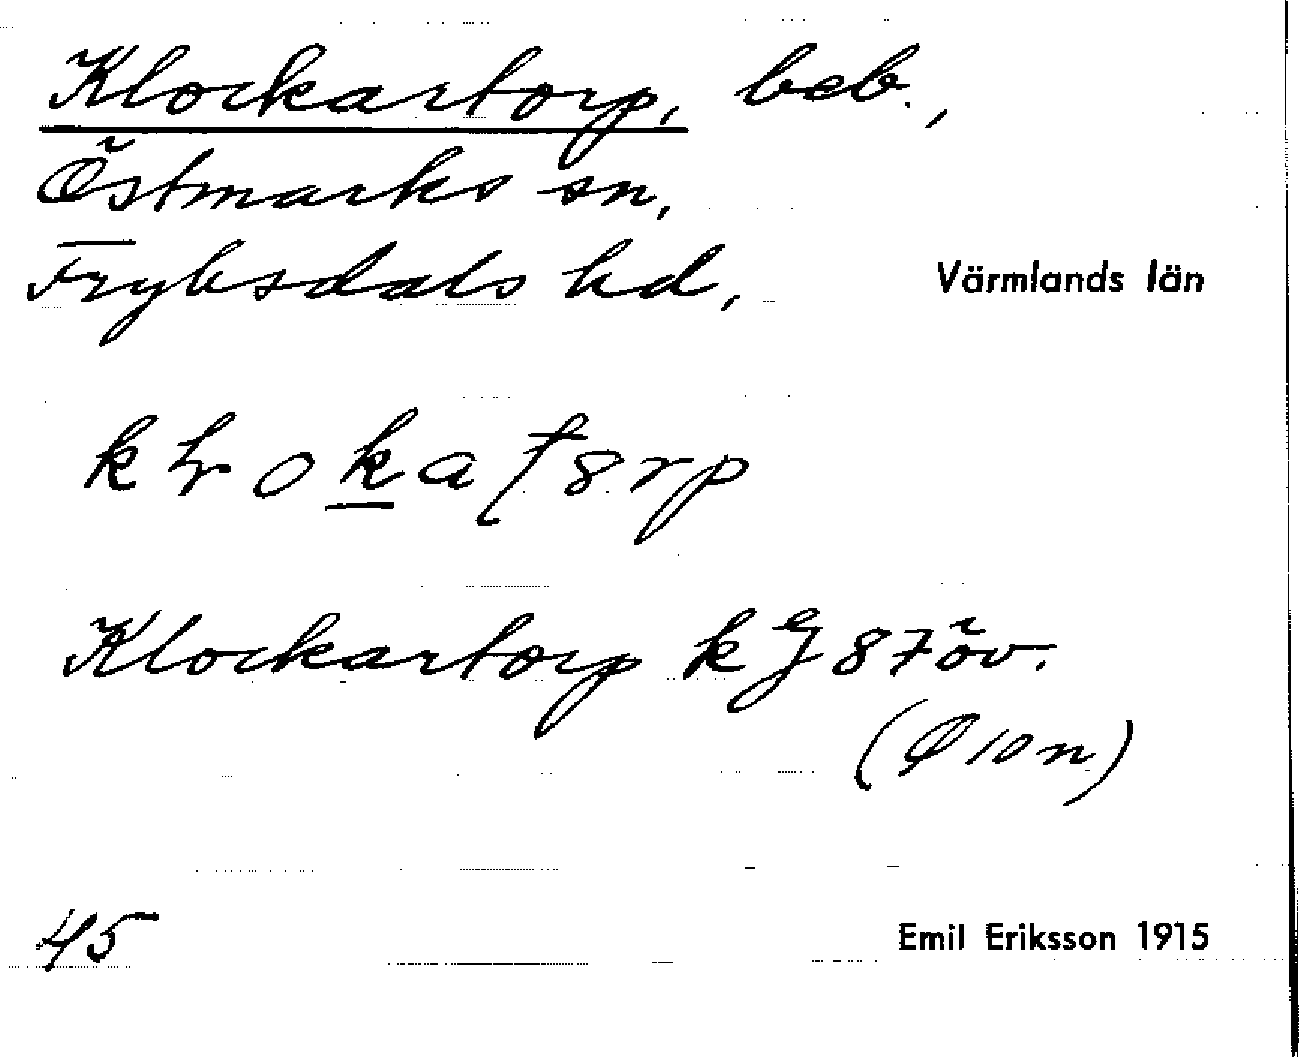 Klockartorp, beb.,
Östmarks sn,
Fryksdals hd, Värmlands län
Klockartorp
(Ø 10 n)
45 Emil Eriksson 1915